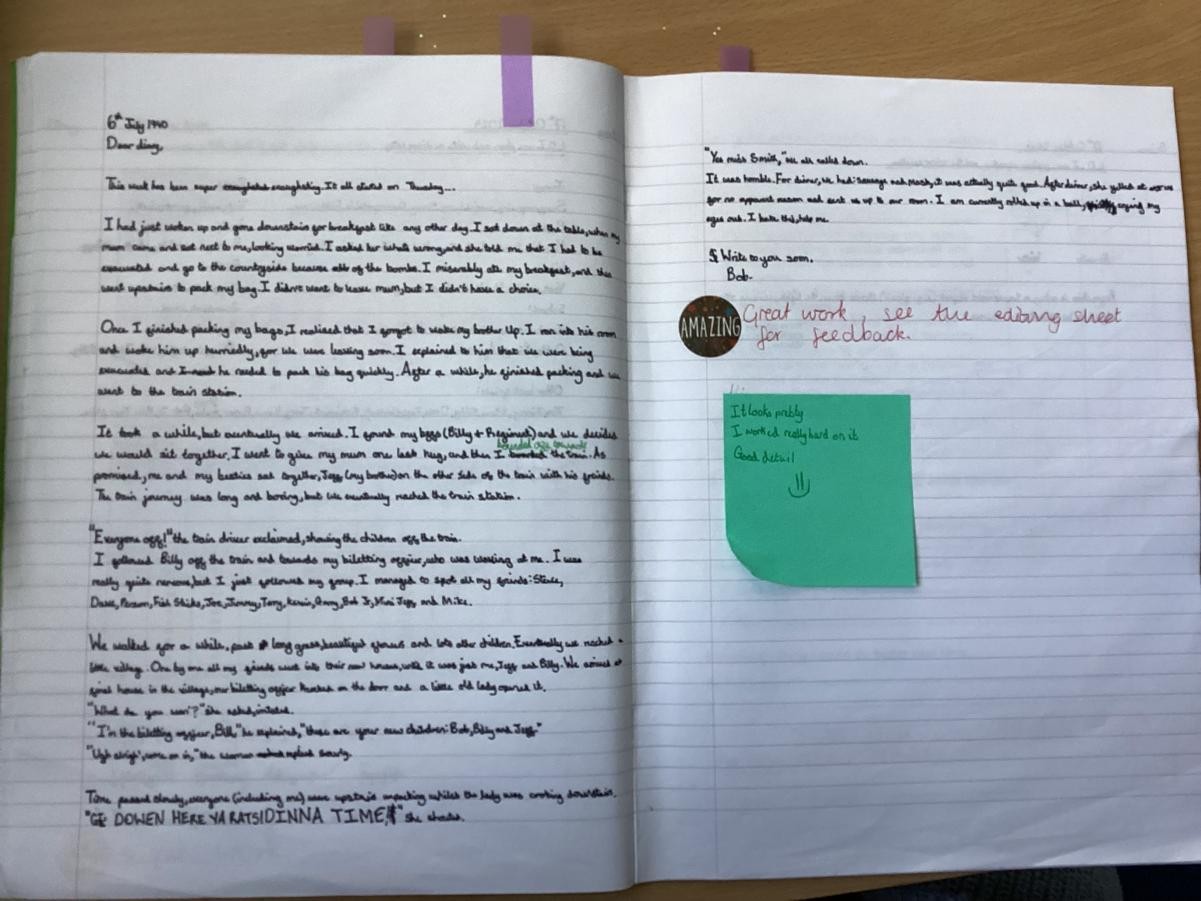 6th July 1940
Dear diary,
This week has been super
It all started on Thursday...
I had just woken up and gone downstairs for breakfast like any other day. I sat down at the table, when my
mum came and sat next to me, looking worried. I asked her whats wrong, and she told me that I had to be
evacuated and go to the countryside because of the bombs. I miserably ate my breakfast, and then
went upstairs to pack my bag. I didn't want to leave mum, but I didn't have a choice.
Once I finished packing my bags, I realised that I forgot to wake my brother up. I ran into his room
and woke him up hurriedly, for we were leaving soon. I explained to him that we were being
evacuated and he needed to pack his bag quickly. After a while, he finished packing and we
went to the train station.
It took a while, but eventually we arrived. I found my bffs (Billy + Regiment) and we decided
we would sit together. I went to give my mum one last hug, and then I boarded the train. As
promised, me and my besties sat together, Jeff (my brother) on the other side of the train with his friends.
The train journey was long and boring, but we eventually reached the train station.
"Everyone off!" the train driver exclaimed, showing the children off the train.
I followed Billy off the train and towards my biletting officer, who was waving at me. I was
really quite nervous, but I just followed my group. I managed to spot all my friends: Steve,
Dave, Person, Fish Sticks, Joe, Jimmy, Tony, Kevin, Bob Jr, Mini Jeff and Mike.
We walked for a while, past long grass, beautiful flowers and lots other children. Eventually we reached a
little village. One by one all my friends went into their new houses, until it was just me, Jeff and Billy. We arrived at
final house in the village, our biletting officer knocked on the door and a little old lady opened it.
"What do you won'?" she asked, irritated.
"I'm the biletting officer, Bill," he explained, "these are your new children: Bob, Billy and Jeff."
"Ugh alrigh', come on in," the woman replied sourly.
Time passed slowly, everyone (including me) were upstairs unpacking whilst the lady was cooking downstairs.
"GE DOWEN HERE YA RATS! DINNA TIME!" she shouted.
"Yes miss Smith," we all called down.
It was horrible. For dinner, we had sausage and mash, it was actually quite good. After dinner, she yelled at us
for no apparent reason and sent us up to our room. I am currently rolled up in a ball, crying my
eyes out. I hate this, help me.
Write to you soon,
Bob.
AMAZING
Great work, see the editing sheet
for feedback.
It looks pretty
I worked really hard on it
Good detail